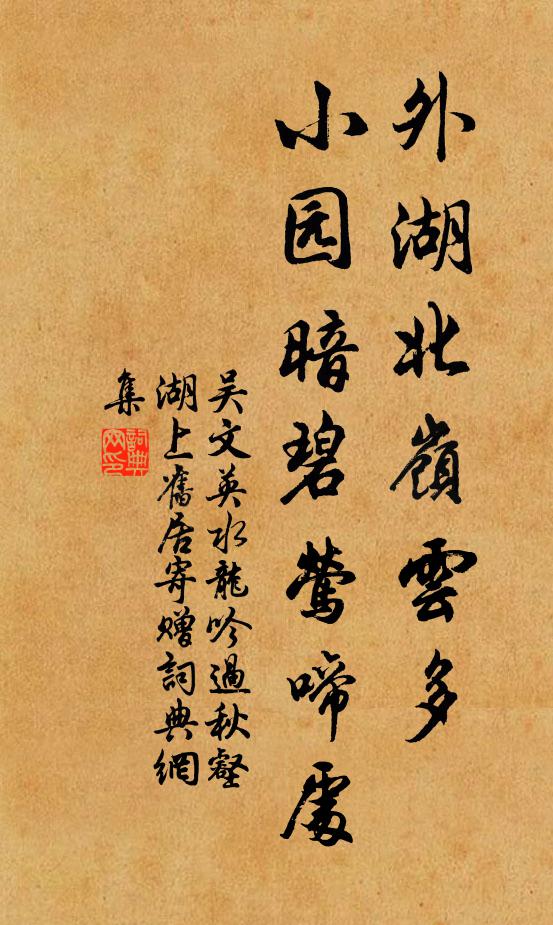 外湖北嶺雲多
小园暗碧莺啼處
吴文英水龍吟過秋壑
湖上舊居寄赠詞典網
集
詞典網印